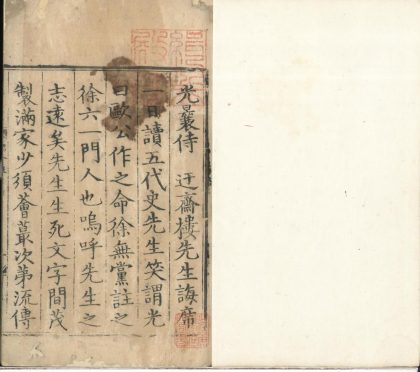 光曩侍 迂齋樓先生誨席
一日讀五代史先生笑謂光
曰歐公作之命徐無黨註之
徐六一門人也嗚呼先生之
志遠矣先生生死文字間茂
製滿家少須薈蕞次第流傳